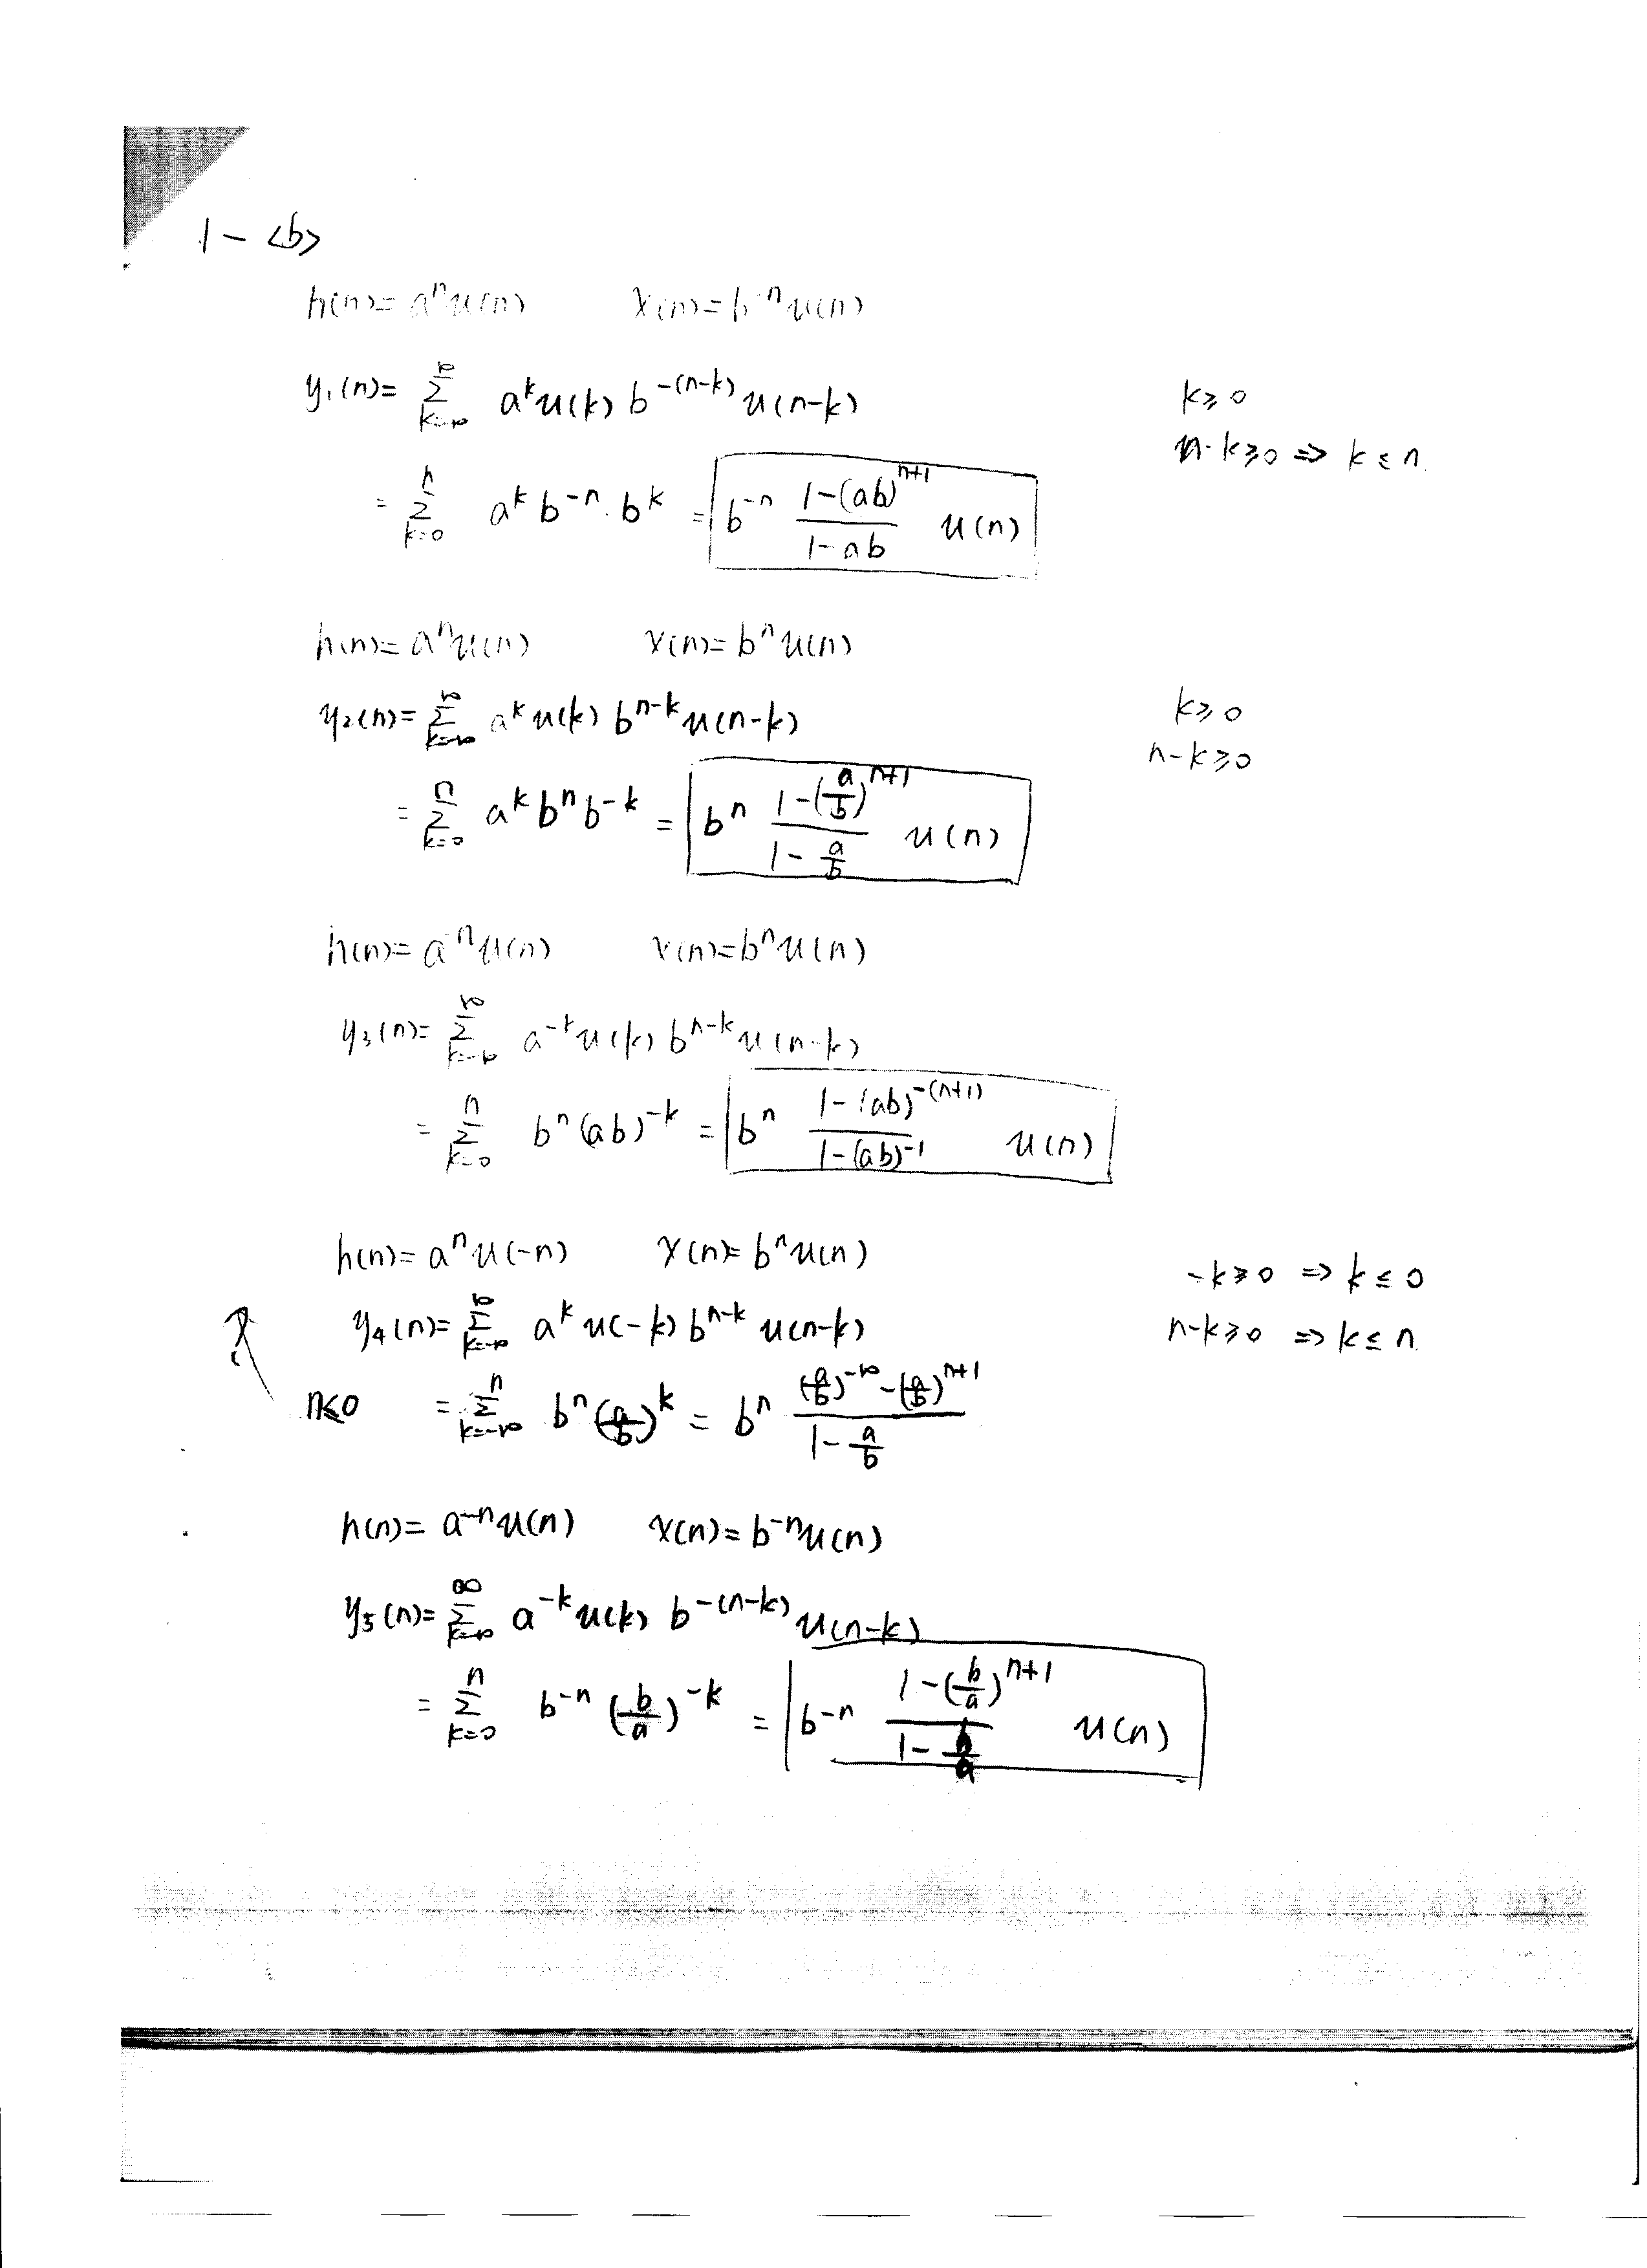 1-<b>
h(n)= aⁿu(n) x(n)=b⁻ⁿu(n)
y₁(n)= Σ_{k=-∞}^{∞} a^k u(k) b^{-(n-k)} u(n-k) k≥0
n-k≥0 ⇒ k≤n
= Σ_{k=0}^{n} a^k b^{-n}·b^k = b^{-n} \frac{1-(ab)^{n+1}}{1-ab} u(n)
h(n)= aⁿu(n) x(n)=bⁿu(n)
y₂(n)= Σ_{k=-∞}^{∞} a^k u(k) b^{n-k} u(n-k) k≥0
n-k≥0
= Σ_{k=0}^{n} a^k b^n b^{-k} = b^n \frac{1-(\frac{a}{b})^{n+1}}{1-\frac{a}{b}} u(n)
h(n)= a⁻ⁿu(n) x(n)=bⁿu(n)
y₃(n)= Σ_{k=-∞}^{∞} a^{-k} u(k) b^{n-k} u(n-k)
= Σ_{k=0}^{n} b^n (ab)^{-k} = b^n \frac{1-(ab)^{-(n+1)}}{1-(ab)^{-1}} u(n)
h(n)= aⁿu(-n) x(n)= bⁿu(n) -k≥0 ⇒ k≤0
y₄(n)= Σ_{k=-∞}^{∞} a^k u(-k) b^{n-k} u(n-k) n-k≥0 ⇒ k≤n
n≤0 = Σ_{k=-∞}^{n} b^n (\frac{a}{b})^k = b^n \frac{(\frac{a}{b})^{-∞}-(\frac{a}{b})^{n+1}}{1-\frac{a}{b}}
h(n)= a⁻ⁿu(n) x(n)= b⁻ⁿu(n)
y₅(n)= Σ_{k=-∞}^{∞} a^{-k} u(k) b^{-(n-k)} u(n-k)
= Σ_{k=0}^{n} b^{-n} (\frac{b}{a})^{-k} = b^{-n} \frac{1-(\frac{b}{a})^{n+1}}{1-\frac{b}{a}} u(n)